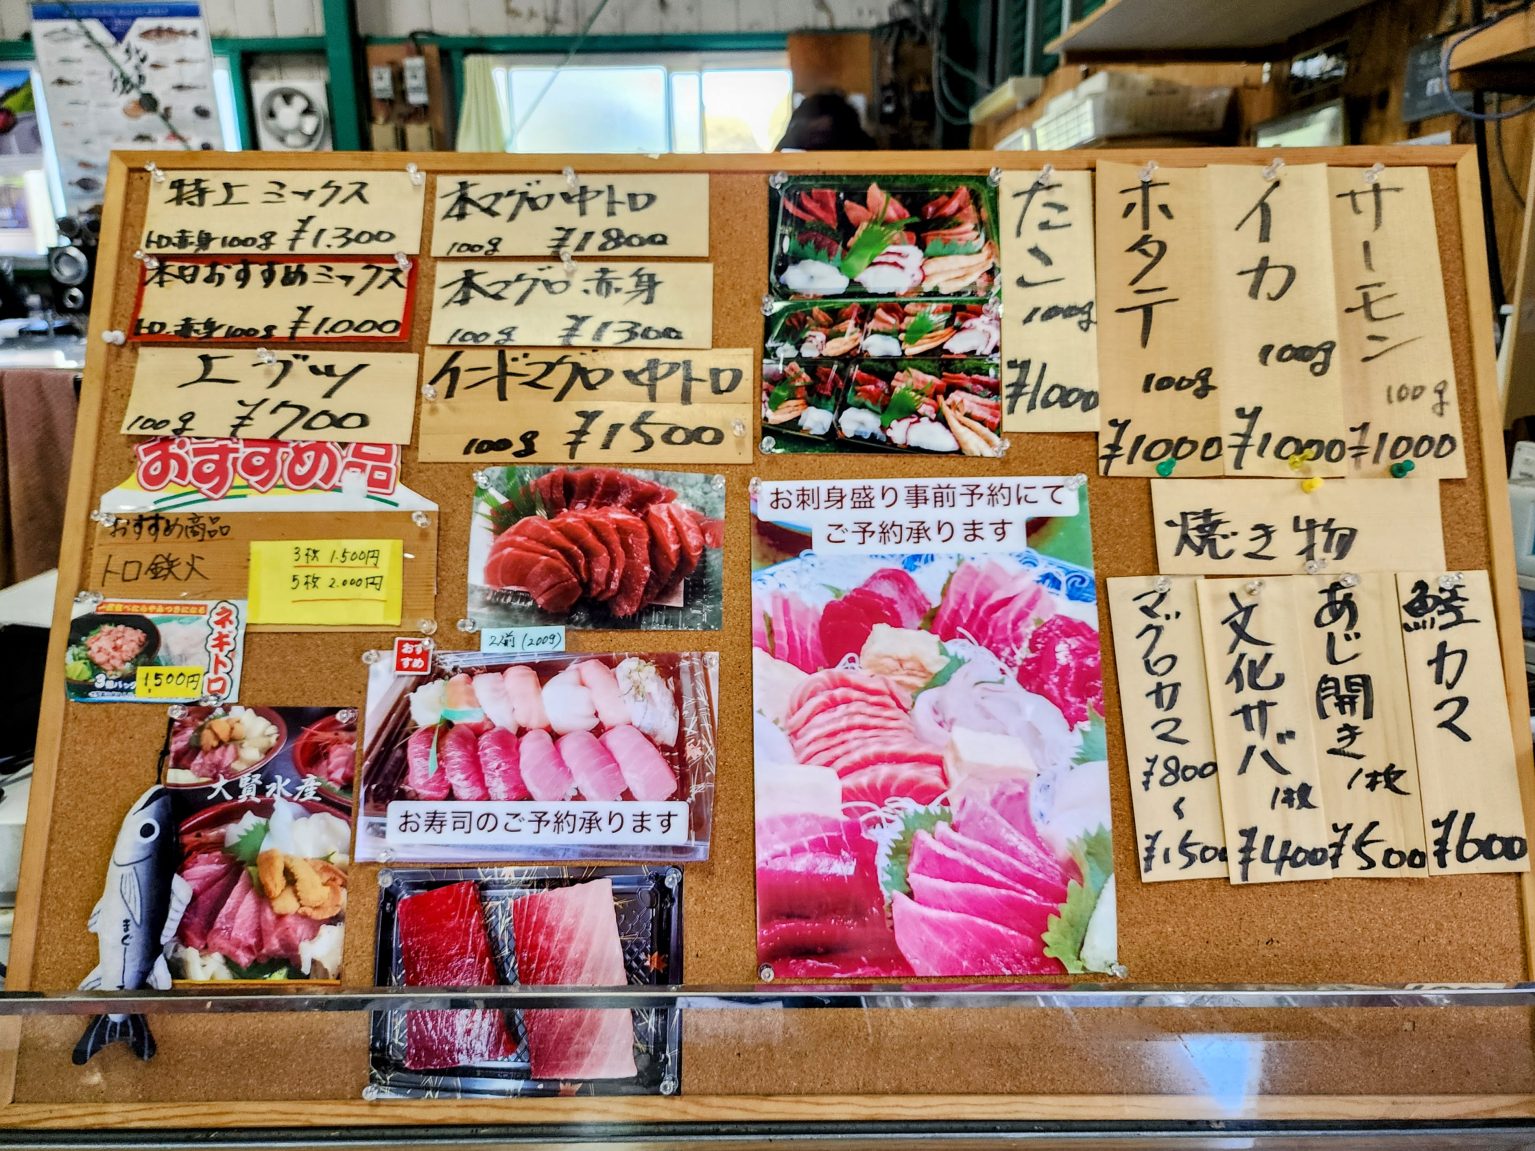 特上ミックス
トロ赤身100g ¥1.300
本日おすすめミックス
トロ.赤身100g ¥1.000
上ブツ
100g ¥700
本マグロ中トロ
100g ¥1800
本マグロ赤身
100g ¥1300
インドマグロ中トロ
100g ¥1500
たこ
100g
¥1000
ホタテ
100g
¥1000
イカ
100g
¥1000
サーモン
100g
¥1000
おすすめ品
おすすめ商品
トロ鉄火
3枚 1.500円
5枚 2.000円
ネギトロ
1,500円
2人前(200g)
おすすめ
お寿司のご予約承ります
大賢水産
まぐー
お刺身盛り事前予約にて
ご予約承ります
焼き物
マグロカマ
¥800
〜
¥1500
文化サバ
1枚
¥400
あじ開き
1枚
¥500
鮭カマ
¥600